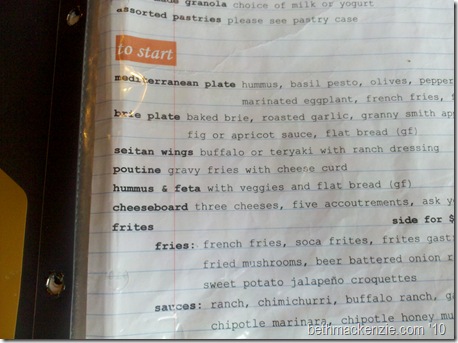 granola choice of milk or yogurt
assorted pastries please see pastry case
to start
mediterranean plate hummus, basil pesto, olives,
marinated eggplant, french fries,
brie plate baked brie, roasted garlic, granny smith
fig or apricot sauce, flat bread (gf)
seitan wings buffalo or teryaki with ranch dressing
poutine gravy fries with cheese curd
hummus & feta with veggies and flat bread (gf)
cheeseboard three cheeses, five accoutrements, ask
frites side for $
fries: french fries, soca frites, frites
fried mushrooms, beer battered onion
sweet potato jalapeño croquettes
sauces: ranch, chimichurri, buffalo ranch,
chipotle marinara, chipotle honey
bethmackenzie.com '10